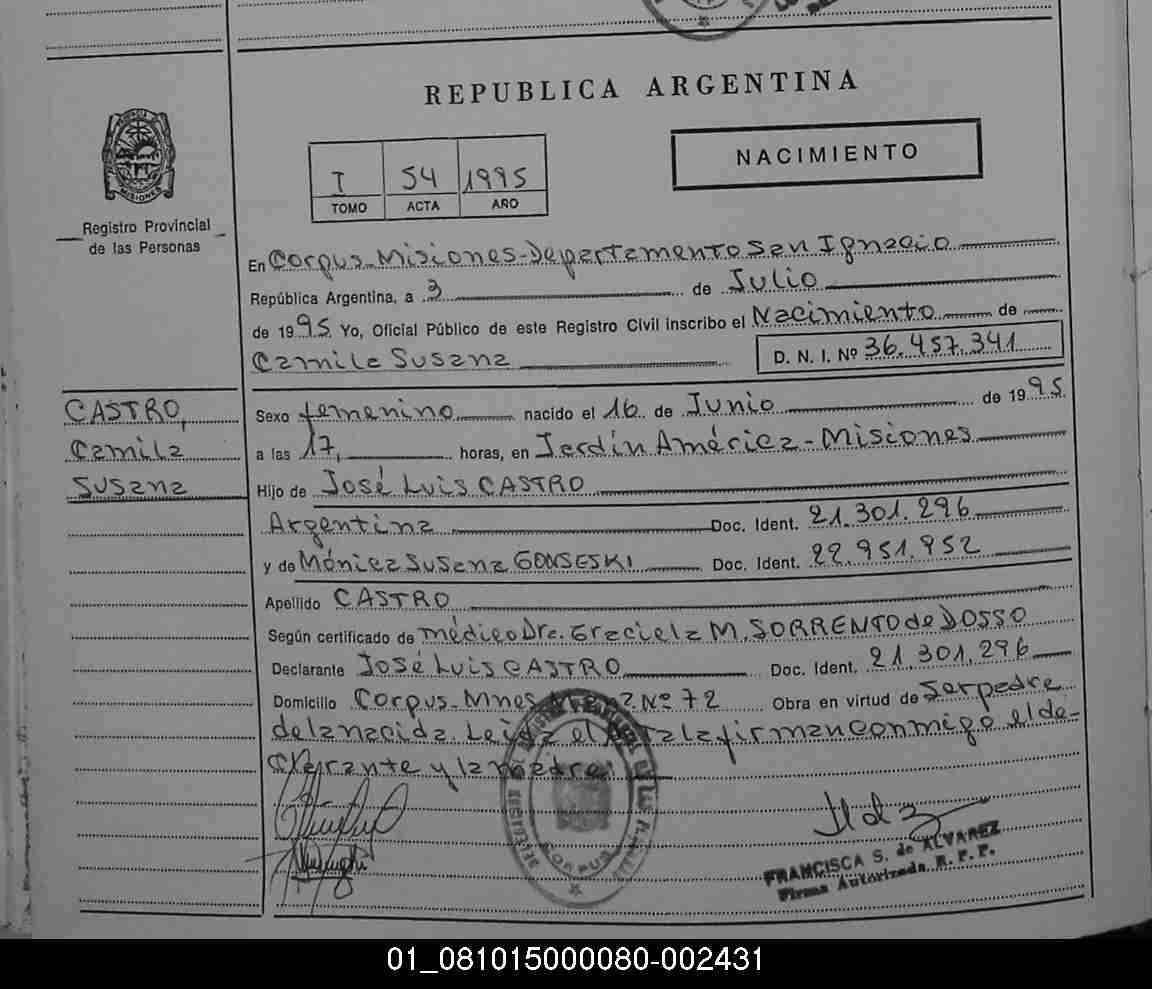 REPUBLICA ARGENTINA
NACIMIENTO
I 54 1995
TOMO ACTA AÑO
MISIONES
Registro Provincial
de las Personas
En Corpus-Misiones-Departamento San Ignacio
República Argentina, a 3 de Julio
de 1995 Yo, Oficial Público de este Registro Civil inscribo el Nacimiento de
Camila Susana D. N. I. Nº 36.457.341
CASTRO,
Camila
Susana
Sexo femenino nacido el 16 de Junio de 1995
a las 17, horas, en Jardín América-Misiones
Hijo de José Luis CASTRO
Argentina Doc. Ident. 21.301.296
y de Mónica Susana GONSESKI Doc. Ident. 22.951.952
Apellido CASTRO
Según certificado de médico Dra. Graciela M. SORRENTO de DOSSO
Declarante José Luis CASTRO Doc. Ident. 21.301.296
Domicilio Corpus-Mnes Nº 72 Obra en virtud de Ser padre
de la nacida. Leida el Acta la firman conmigo el de-
clarante y la madre
CORPUS
FRANCISCA S. de ALVAREZ
Firma Autorizada R. P. P.
01_081015000080-002431